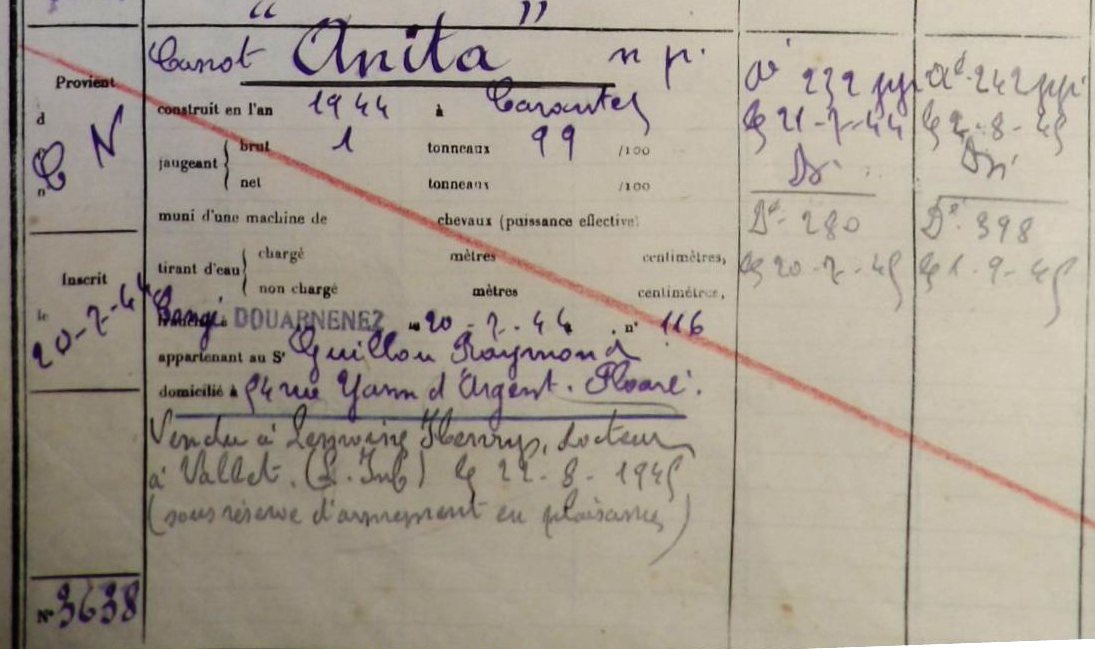 " "
Canot Anita n p.
Provient
d
C N
n
construit en l'an 1944 à Carantec
jaugeant { brut 1 tonneaux 99 /100
net tonneaux /100
muni d'une machine de chevaux (puissance effective)
tirant d'eau { chargé mètres centimètres,
non chargé mètres centimètres,
Inscrit
le 20-7-44
Congé DOUARNENEZ le 20-7-44 . n° 116
appartenant au Sr Guillou Raymond
domicilié à 54 rue Yann d'Argent. Ploaré.
Vendu à Lemoine Henry, docteur
à Vallet. (L. Inf) le 22-8-1945
(sous réserve d'armement en plaisance)
N° 3638
Ar 232
le 21-7-44
Dr
Dé. 280
le 20-7-45
Ar. 242
le 2-8-45
Dé. 398
le 1-9-45